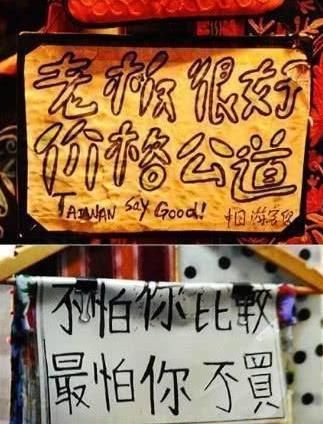 老板很好
价格公道
TAIWAN say GooD!
不怕你比較
最怕你不買